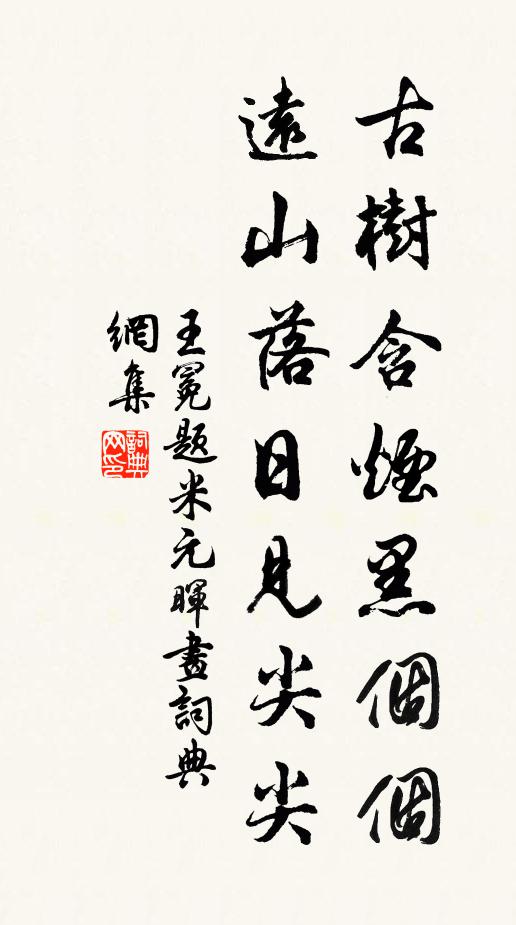 古樹含煙黑個個
遠山落日見尖尖
王冕題米元暉畫詞典
網集
詞典网印